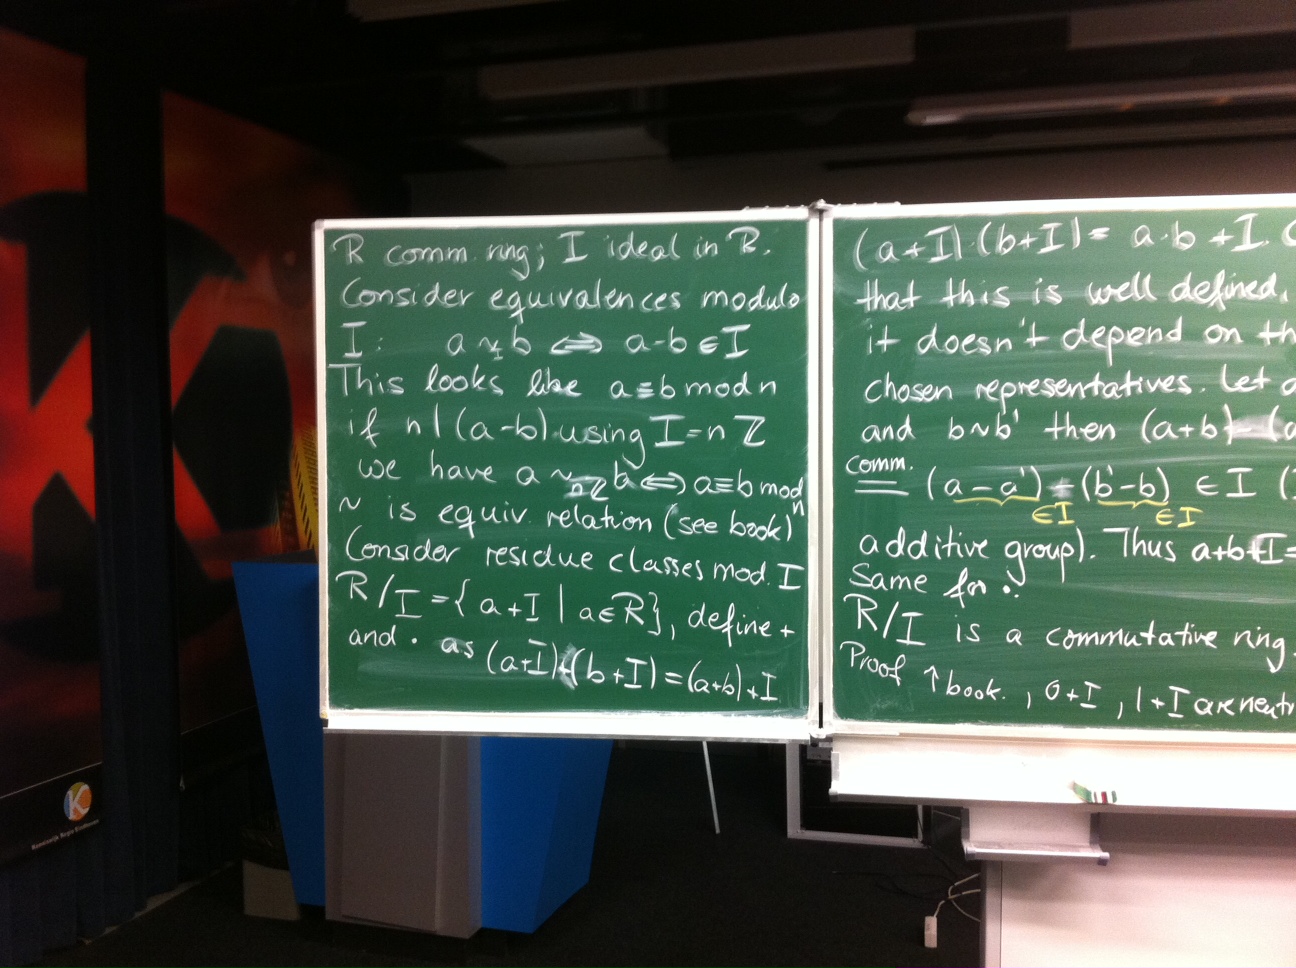 R comm. ring; I ideal in R.
Consider equivalences modulo
I: a ~_I b ⇔ a-b ∈ I
This looks like a ≡ b mod n
if n | (a-b). using I = n ℤ
we have a ~_nℤ b ⇔ a ≡ b mod n
~ is equiv. relation (see book)
Consider residue classes mod. I
R/I = { a+I | a ∈ R }, define +
and · as (a+I)+(b+I) = (a+b)+I
(a+I)·(b+I) = a·b + I.
that this is well defined,
it doesn't depend on
chosen representatives. Let
and b~b' then (a+b) - (a
comm.
= (a-a') + (b'-b) ∈ I
∈I ∈I
additive group). Thus a+b+I =
Same for ·.
R/I is a commutative ring.
Proof ↑ book. , 0+I , 1+I are
K